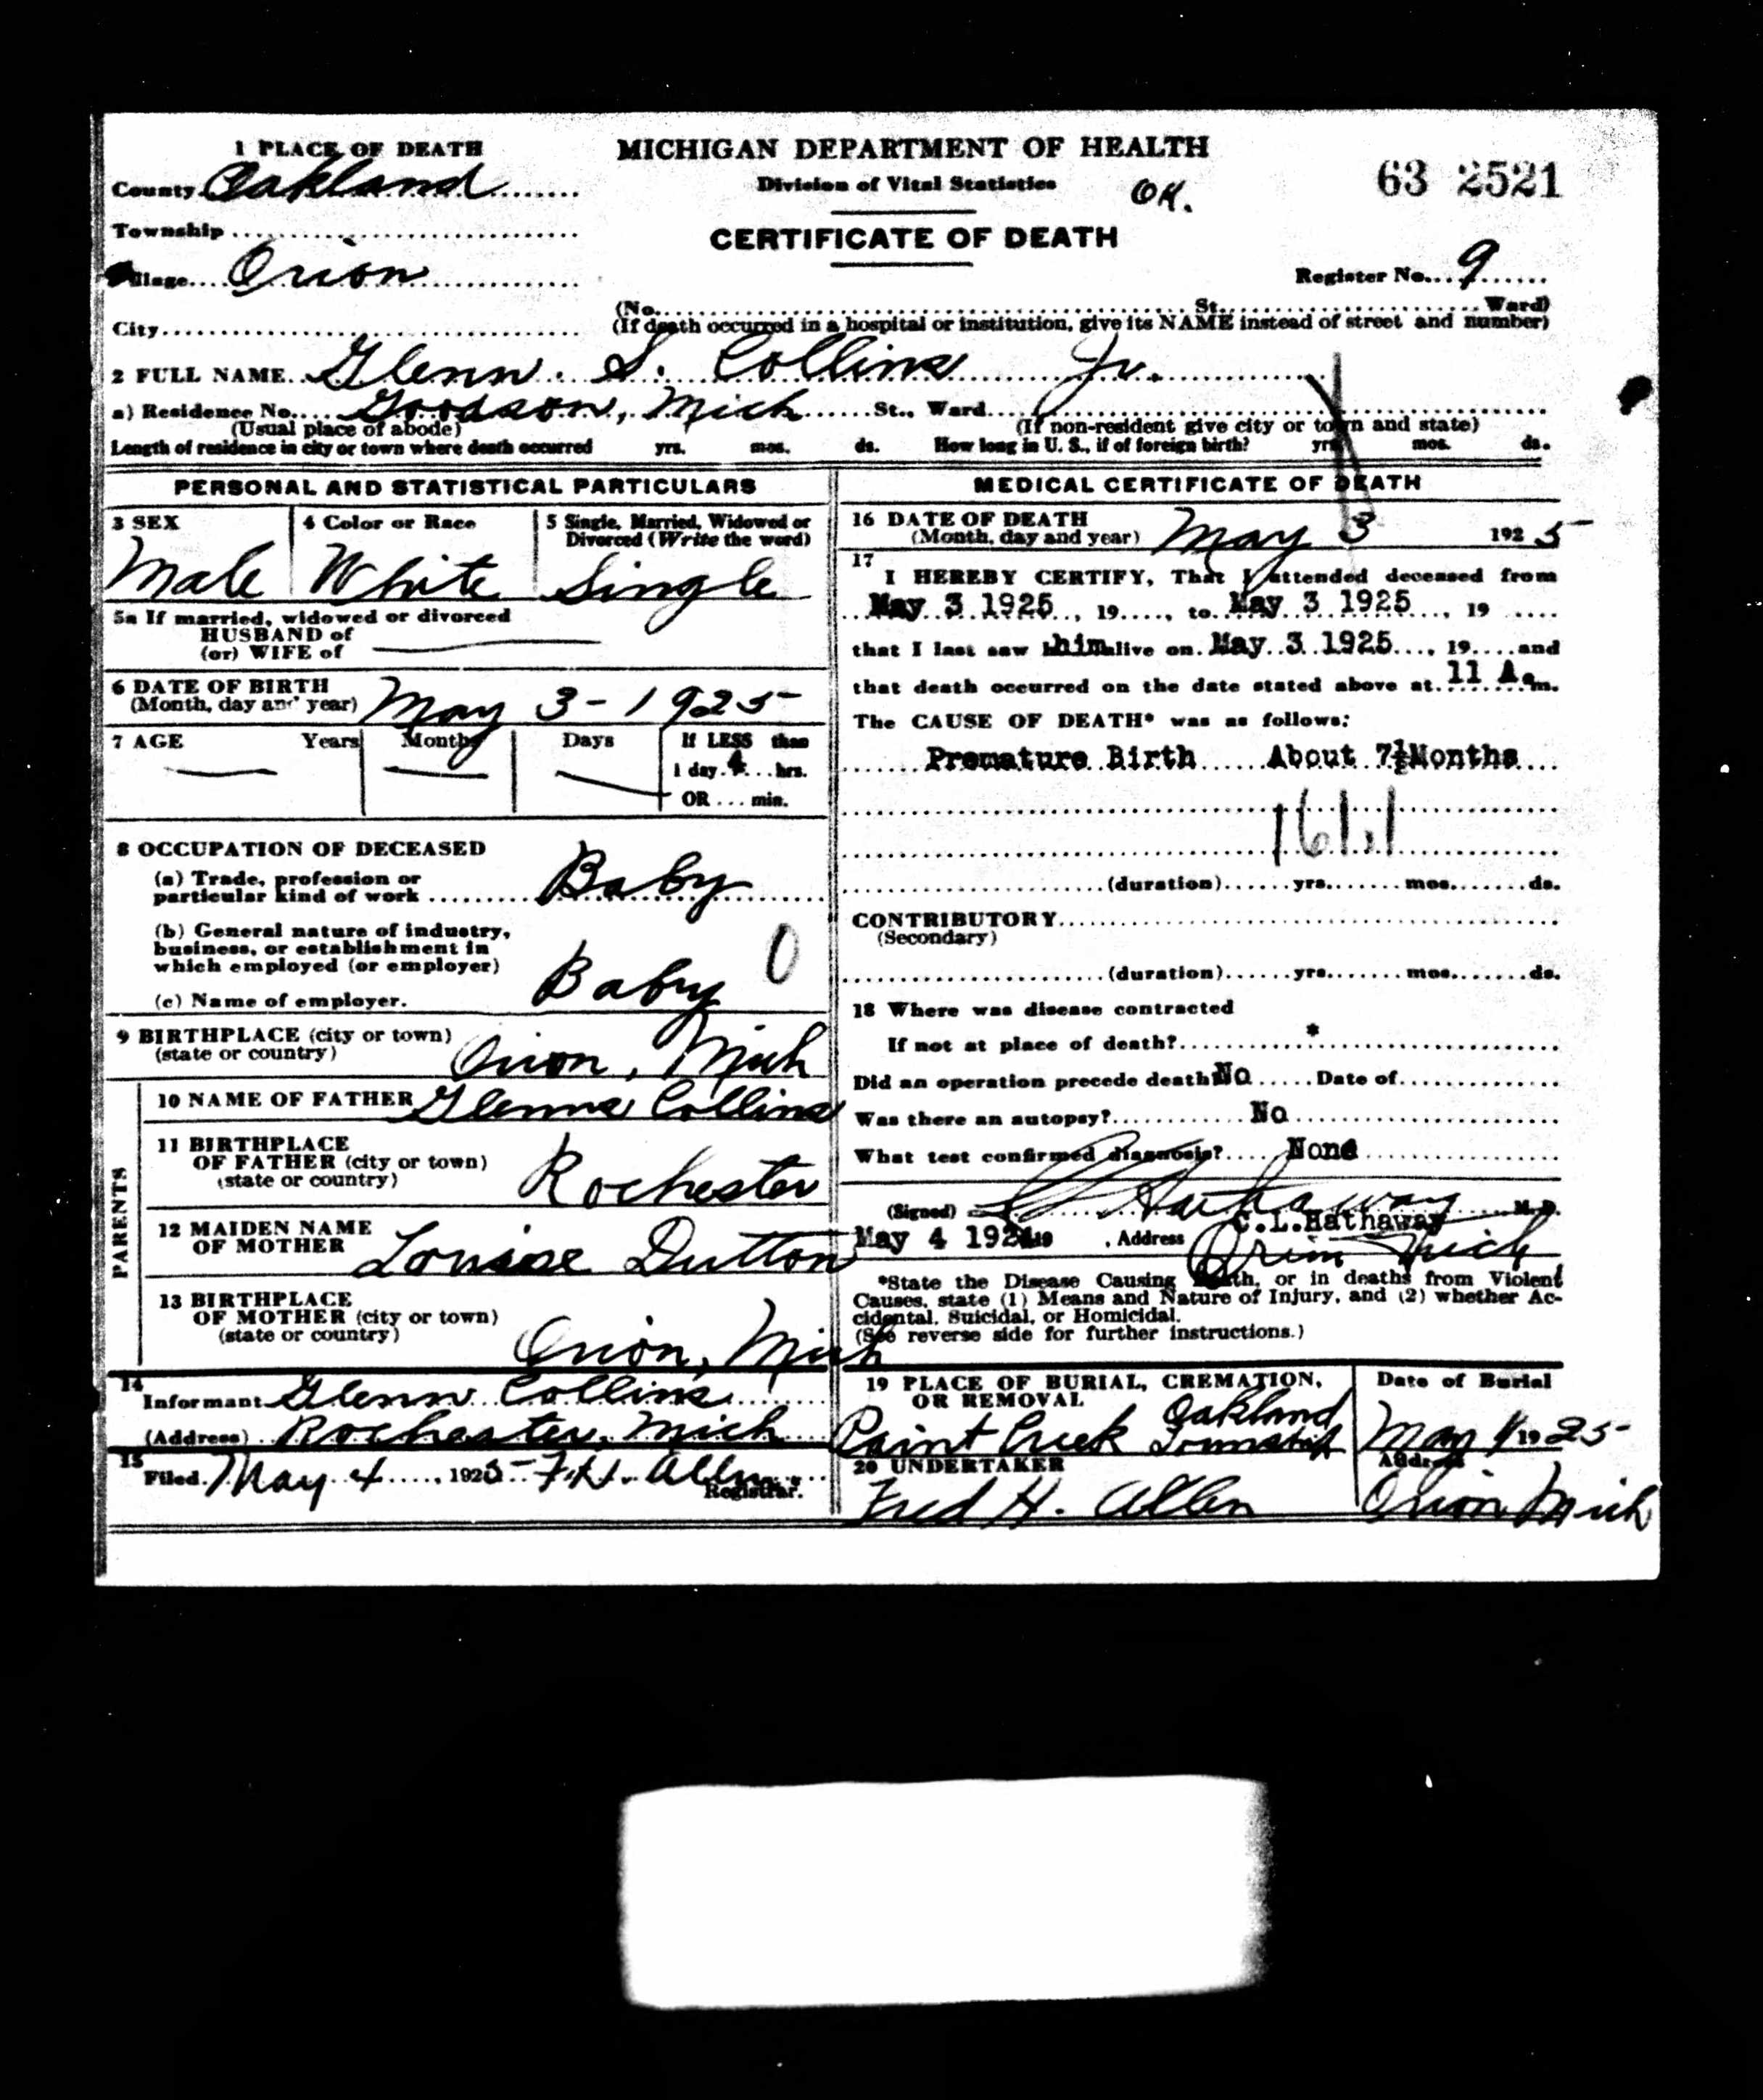 1 PLACE OF DEATH
County Oakland
Township
Village Orion
City
MICHIGAN DEPARTMENT OF HEALTH
Division of Vital Statistics
OK.
CERTIFICATE OF DEATH
63 2521
Register No. 9
(No. St. Ward)
(If death occurred in a hospital or institution, give its NAME instead of street and number)
2 FULL NAME Glenn. S. Collins Jr.
a) Residence No. Goodson, Mich St., Ward
(Usual place of abode) (If non-resident give city or town and state)
Length of residence in city or town where death occurred yrs. mos. ds. How long in U. S., if of foreign birth? yrs. mos. ds.
PERSONAL AND STATISTICAL PARTICULARS
3 SEX 4 Color or Race 5 Single, Married, Widowed or
Divorced (Write the word)
Male White Single
5a If married, widowed or divorced
HUSBAND of
(or) WIFE of
6 DATE OF BIRTH
(Month, day and year) May 3-1925
7 AGE Years Months Days If LESS than
1 day 4 hrs.
OR ... min.
8 OCCUPATION OF DECEASED
(a) Trade, profession or
particular kind of work Baby
(b) General nature of industry,
business, or establishment in
which employed (or employer) Baby 0
(c) Name of employer.
9 BIRTHPLACE (city or town)
(state or country) Orion, Mich
PARENTS
10 NAME OF FATHER Glenne Collins
11 BIRTHPLACE
OF FATHER (city or town)
(state or country) Rochester
12 MAIDEN NAME
OF MOTHER Louise Dutton
13 BIRTHPLACE
OF MOTHER (city or town)
(state or country) Orion, Mich
14
Informant Glenn Collins
(Address) Rochester, Mich
15
Filed May 4, 1925 F.H. Allen
Registrar.
MEDICAL CERTIFICATE OF DEATH
16 DATE OF DEATH
(Month, day and year) May 3 1925
17
I HEREBY CERTIFY, That I attended deceased from
May 3 1925, 19....., to May 3 1925, 19.....
that I last saw him alive on May 3 1925, 19.... and
that death occurred on the date stated above at 11 A.m.
The CAUSE OF DEATH* was as follows:
Premature Birth About 7½Months
161.1
(duration) yrs. mos. ds.
CONTRIBUTORY
(Secondary)
(duration) yrs. mos. ds.
18 Where was disease contracted
If not at place of death? *
Did an operation precede death No Date of
Was there an autopsy? No
What test confirmed diagnosis? None
(Signed) C L Hathaway M.D.
C.L.Hathaway
May 4 192 19 , Address Orion Mich
*State the Disease Causing Death, or in deaths from Violent
Causes, state (1) Means and Nature of Injury, and (2) whether Ac-
cidental, Suicidal, or Homicidal.
(See reverse side for further instructions.)
19 PLACE OF BURIAL, CREMATION,
OR REMOVAL
Paint Creek Oakland Township
Date of Burial
May 4 1925
20 UNDERTAKER
Fred H. Allen
Address
Orion Mich